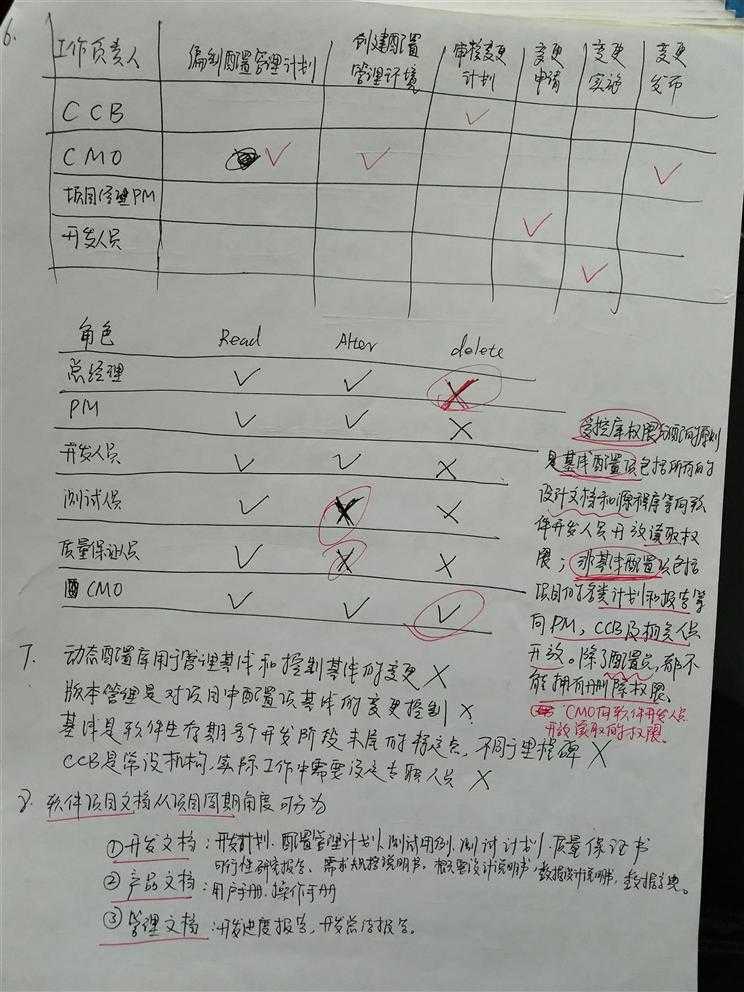 6.
工作负责人 编制配置管理计划 创建配置管理环境 审核变更计划 变更申请 变更实施 变更发布
CCB ✓
CMO ✓ ✓ ✓
项目经理PM ✓
开发人员
✓
角色 Read Alter delete
总经理 ✓ ✓ ×
PM ✓ ✓ ×
开发人员 ✓ ✓ ×
测试员 ✓ × ×
质量保证人员 ✓ × ×
CMO ✓ ✓ ✓
受控库权限分配的原则
是基线配置项包括所有的
设计文档和源程序等向软
件开发人员开放读取权
限；非基线配置项包括
项目的各类计划和报告等
向PM，CCB及相关人员
开放。除了配置员，都不
能拥有删除权限
CMO向软件开发人员
开放读取的权限。
7. 动态配置库用于管理基线和控制基线的变更 ×
版本管理是对项目中配置项基线的变更控制 ×
基线是软件生存期各个开发阶段末尾的特定点，不同于里程碑 ×
CCB是常设机构，实际工作中需要设定专职人员 ×
8. 软件项目文档从项目周期角度可分为
①开发文档：开发计划、配置管理计划、测试用例、测试计划、质量保证书
可行性研究报告、需求规格说明书，概要设计说明书，数据设计说明书，数据字典。
②产品文档：用户手册、操作手册
③管理文档：开发进度报告，开发总结报告。